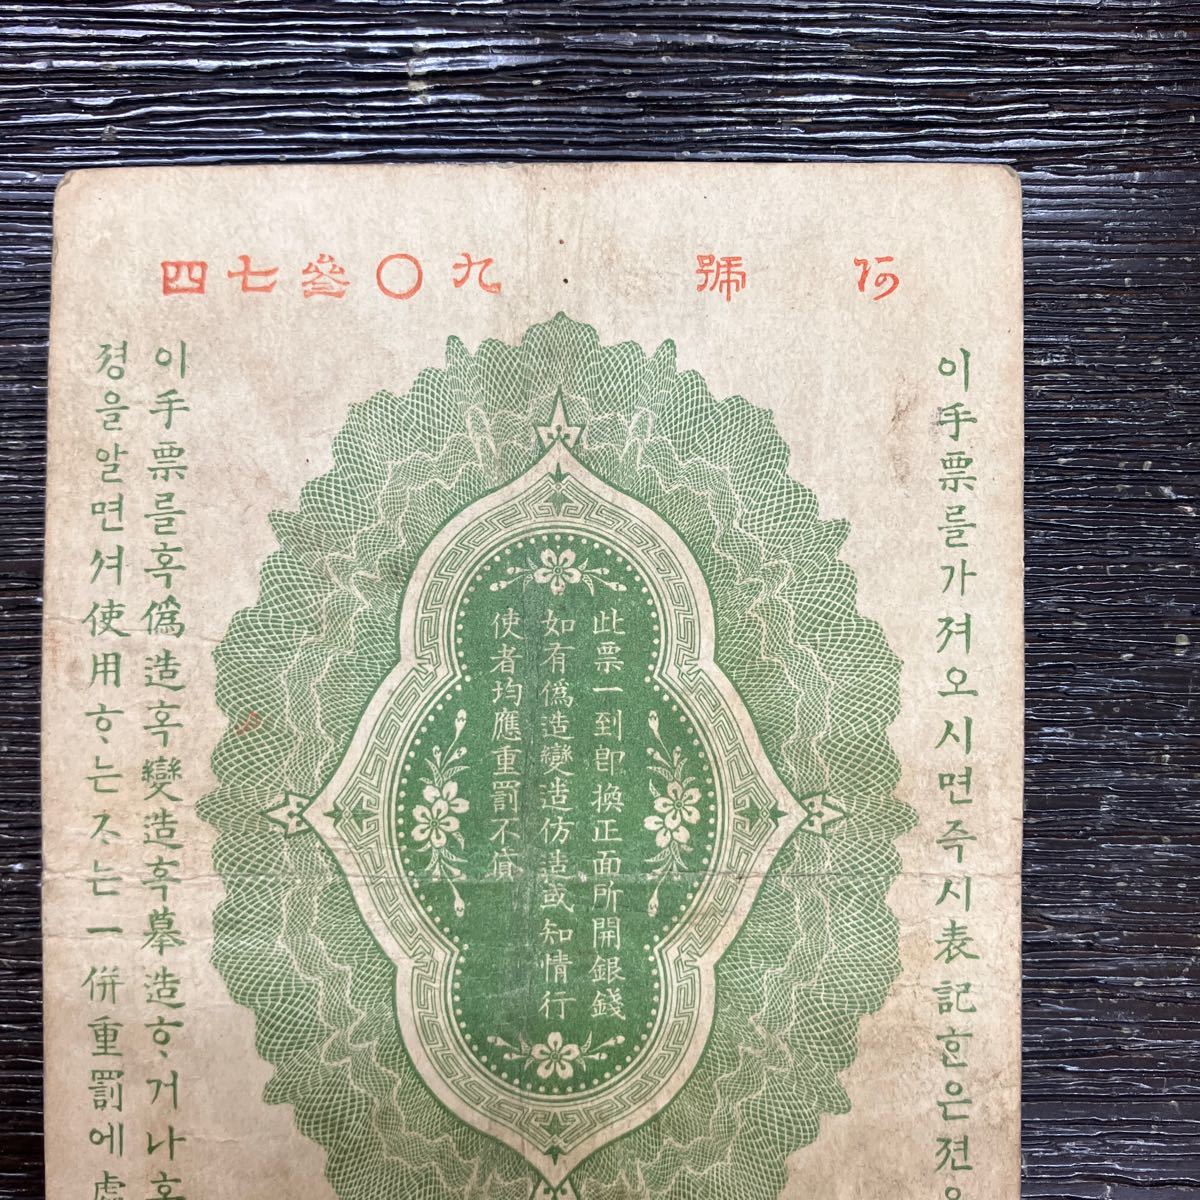 號 九〇叁七四
이手票를가져오시면즉시表記ᄒᆞᆫ은젼
此票一到卽換正面所開銀錢
如有僞造變造仿造或知情行
使者均應重罰不貸
이手票를혹僞造혹變造혹摹造ᄒᆞ거나혹
졍을알면셔使用ᄒᆞ는ᄌᆞ는一併重罰에處